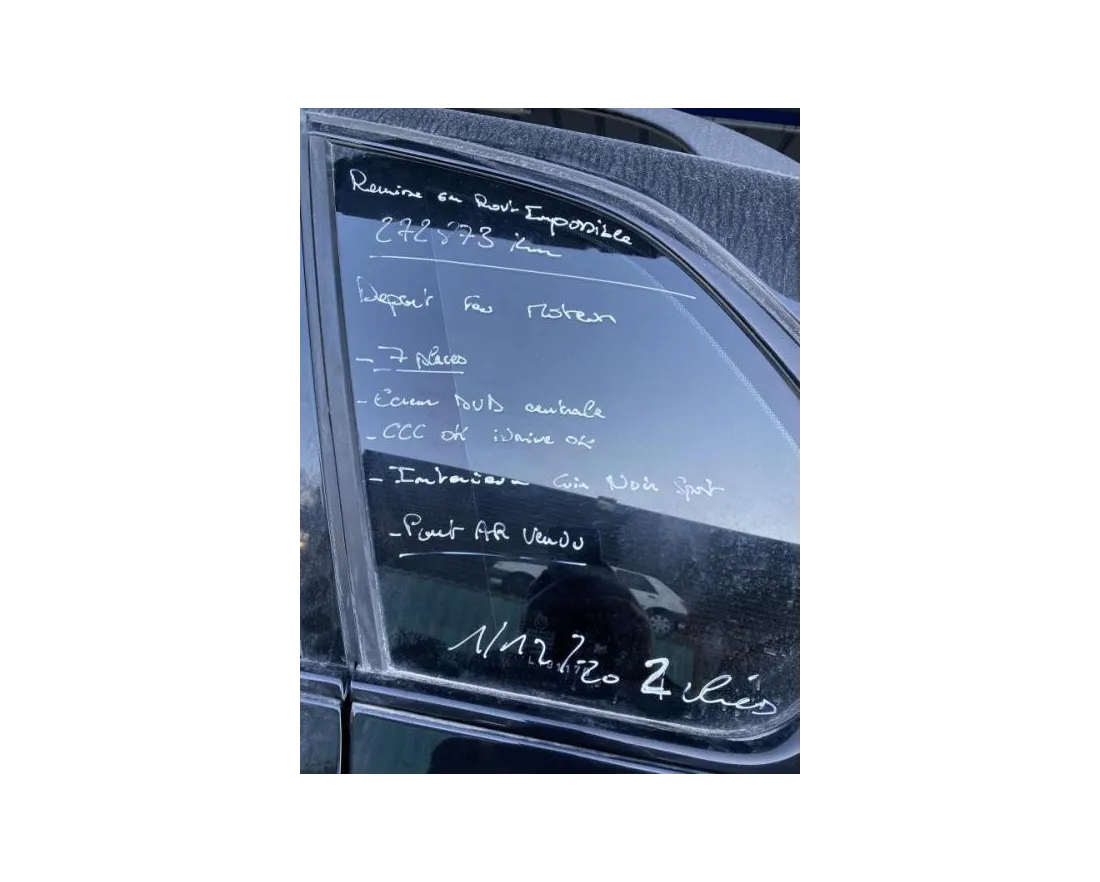 Remise en Rout Impossible
272573 km
Depart Feu Moteur
- 7 places
- Ecran DVD centrale
- CCC OK iDrive OK
- Interieur Cuir Noir Sport
- Pont AR Vendu
1/12/20 2 clés